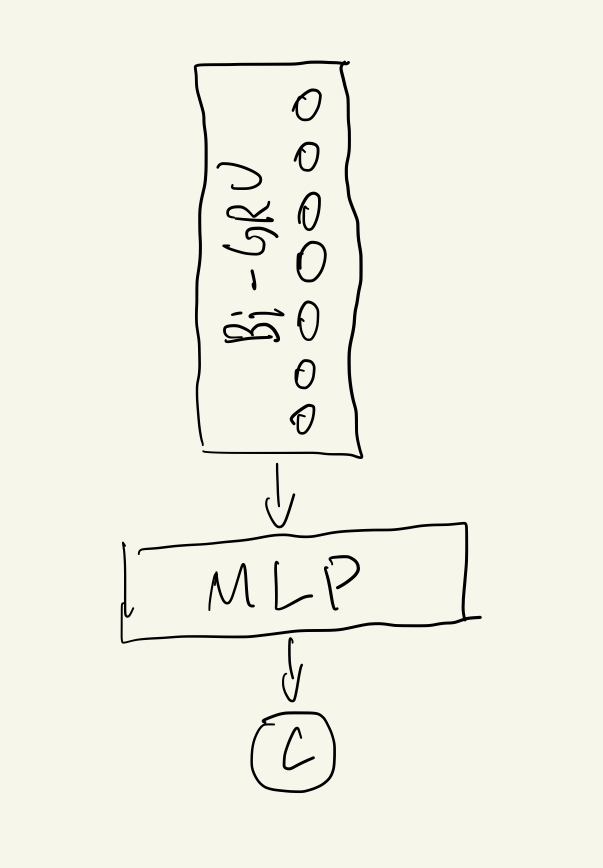 Bi-GRU
MLP
C